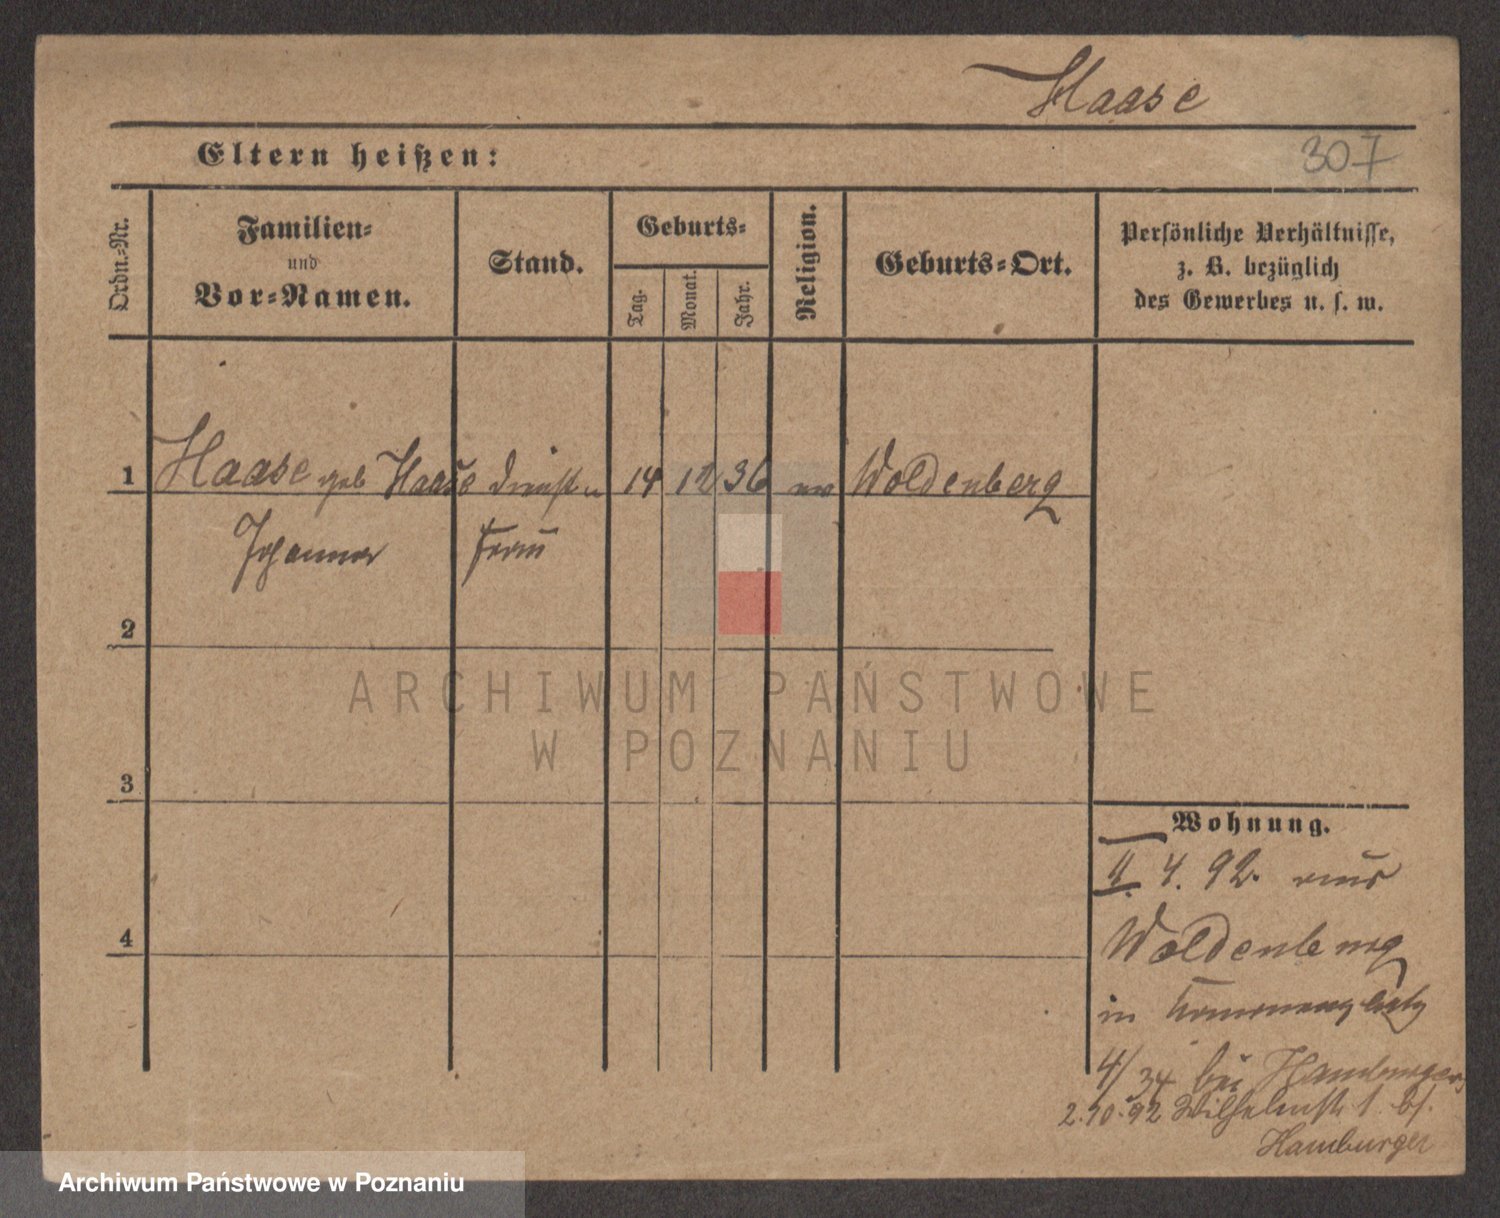 Haase
307
Eltern heißen:
Ordn.-Nr.
Familien-
und
Vor-Namen.
Stand.
Geburts-
Tag.
Monat.
Jahr.
Religion.
Geburts-Ort.
Persönliche Verhältnisse,
z. B. bezüglich
des Gewerbes u. s. w.
1 Haase geb Haase Dienst 14 12 36 ev Woldenberg
Johanna Frau
2
ARCHIWUM PAŃSTWOWE
W POZNANIU
3
Wohnung.
4. 92. aus
4
Woldenberg
in
4/34 bei Hamburger
2.10.92 Wilhelmstr 1 bei
Hamburger
Archiwum Państwowe w Poznaniu